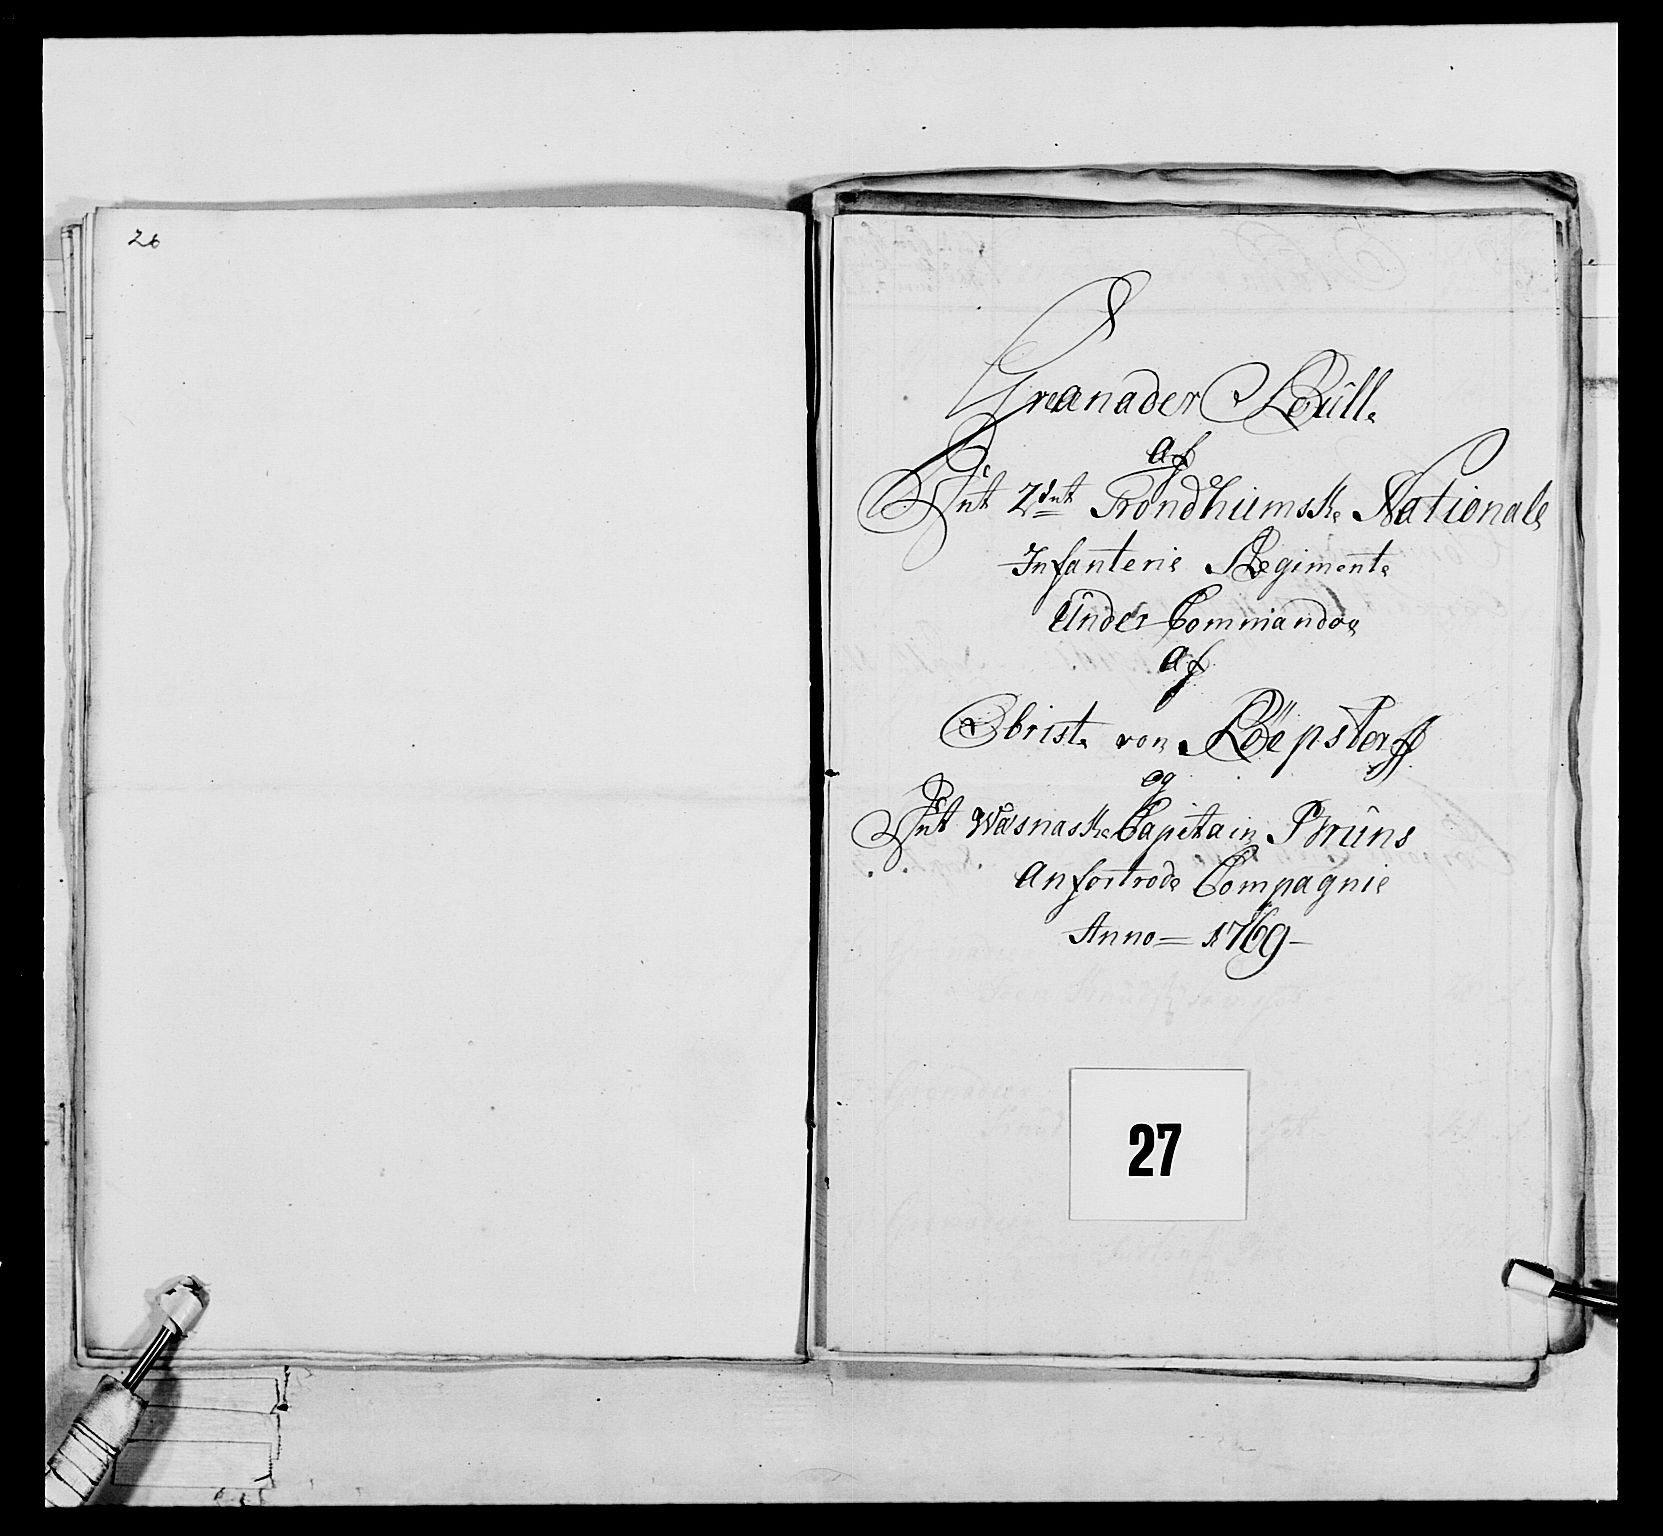 26
Granader Rulle
af
Det 2det Trondhiemske Nationale
Infanterie Regimente
Under Commando
af
Obriste von Röepstorff
og
Det Wæsnæske Capitain Brüns
Anfortrode Compagnie
Anno = 1769 –
27